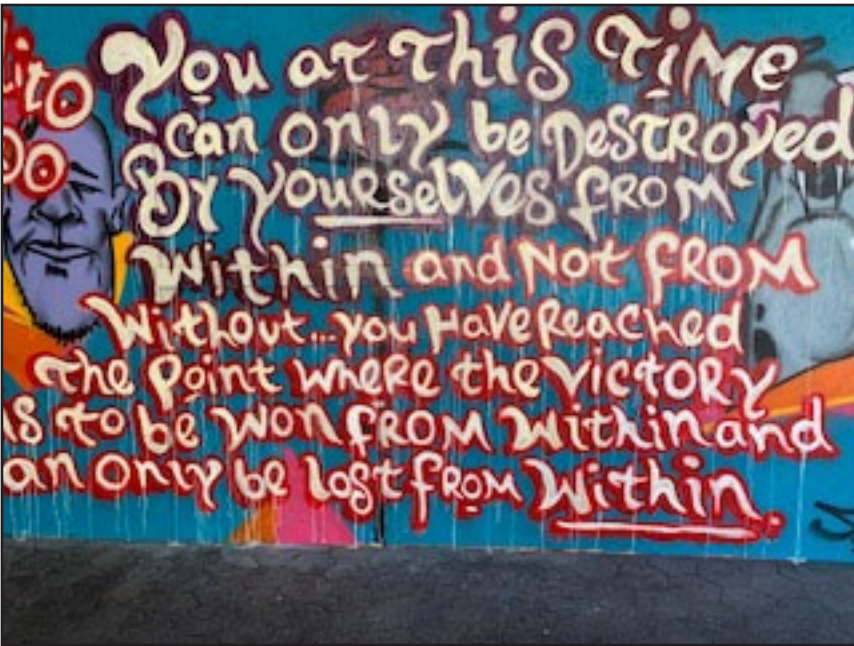 You at This Time
can only be Destroyed
By yourselves from
Within and Not from
Without...you Have Reached
The Point where the victory
is to be won from Within and
an only be lost from Within.